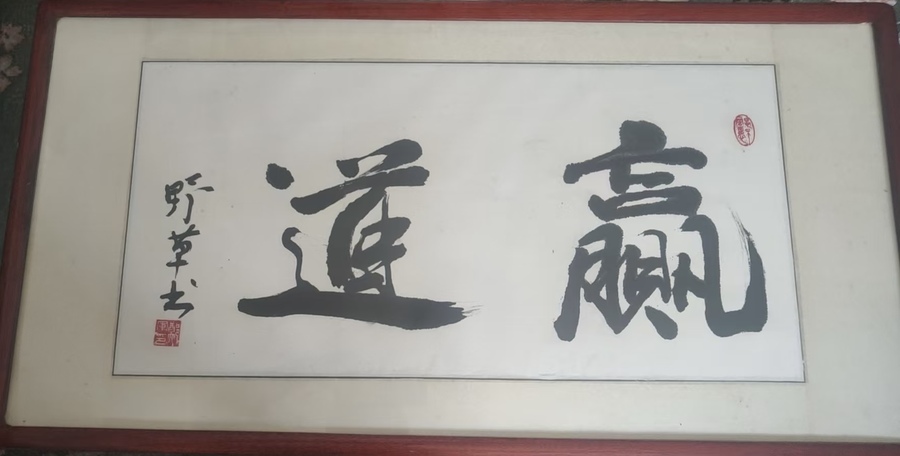 赢道
野草书